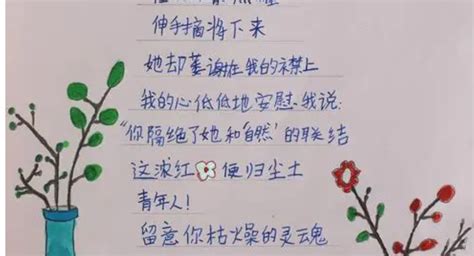 伸手摘将下来
她却萎谢在我的襟上
我的心低低地安慰我说:
“你隔绝了她和‘自然’的联结
这浓红便归尘土
青年人!
留意你枯燥的灵魂